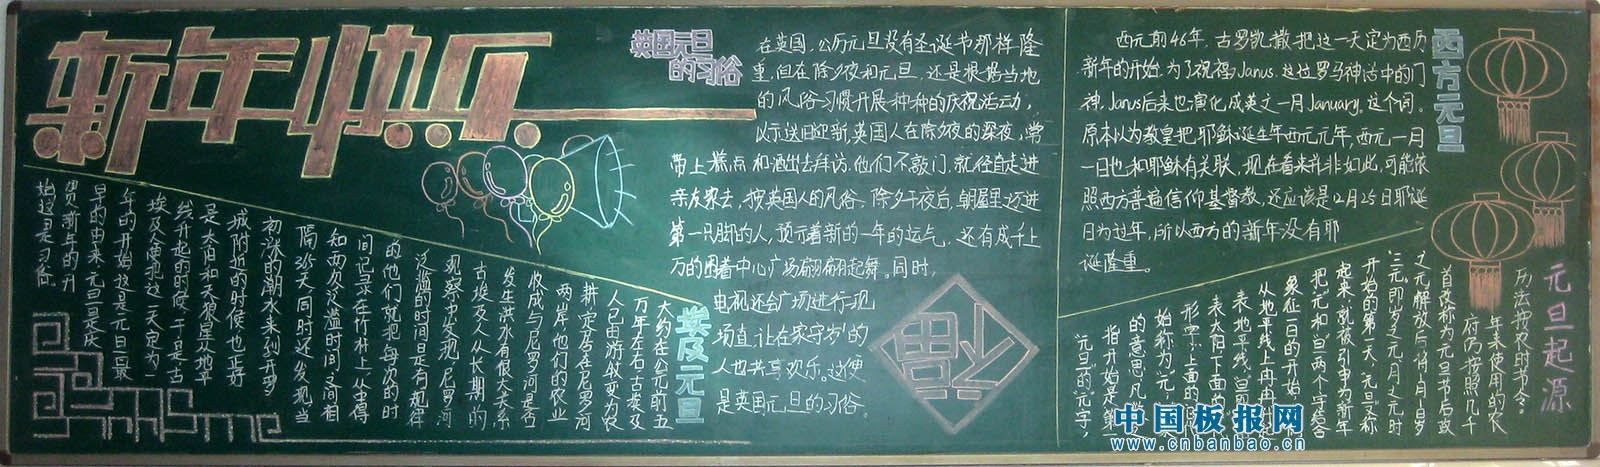 新年快乐
英国元旦
的习俗
在英国,公历元旦没有圣诞节那样隆
重,但在除夕夜和元旦,还是根据当地
的风俗习惯开展种种的庆祝活动,
以示送旧迎新,英国人在除夕夜的深夜,常
带上糕点和酒出去拜访,他们不敲门,就径自走进
亲友家去,按英国人的风俗,除夕千夜后,朝屋里迈进
第一只脚的人,预示着新的一年的运气,还有成千上
万的围着中心广场翩翩起舞。同时,
电视还会广场进行现
场直,让在家守岁的
人也共享欢乐。这便
是英国元旦的习俗。
埃及元旦
大约在公元前五
万年左右,古埃及
人已由游牧变为农
耕,定居在尼罗河
两岸,他们的农业
收成与尼罗河是否
发生洪水有很大关系
古埃及人从长期的
观察中发现,尼罗河
泛滥的时间是有规律
的他们就把每次的时
间记录在竹杆上,从中得
知两次泛滥时间之间相
隔365天同时还发现当
初涨的潮水来到开罗
城附近的时候,也正好
是太阳和天狼星从地平
线升起的时候,于是古
埃及人便把这一天定为一
年的开始,这是元旦最
早的由来,元旦是庆
贺新年的开
始这是习俗
西方元旦
西元前46年,古罗凯撒把这一天定为西历
新年的开始,为了祝福Janus,这位罗马神话中的门
神,Janus后来也演化成英文一月January,这个词。
原本以为教皇把耶稣诞生年西元元年,西元一月
一日也和耶稣有关联,现在看来并非如此,可能依
照西方普遍信仰基督教,还应该是12月25日耶诞
日为过年,所以西方的新年没有耶
诞隆重。
元旦起源
历法按农时节令。
年来使用的农
付仍按照几千
首改称为元旦节后政
之元解放后将1月1日岁
三元,即岁之元,月之元,时
开始的第一天,元旦又称
起来就被引申为新年
把元和旦两个字结合
象征一日的开始,人
从地平线上冉冉
表地平线,旦即
表太阳,下上面的
形字,上面的
的意思,凡
始称为元
指开始是第一
元旦的元字,
福
中国板报网
www.cnbanbao.cn